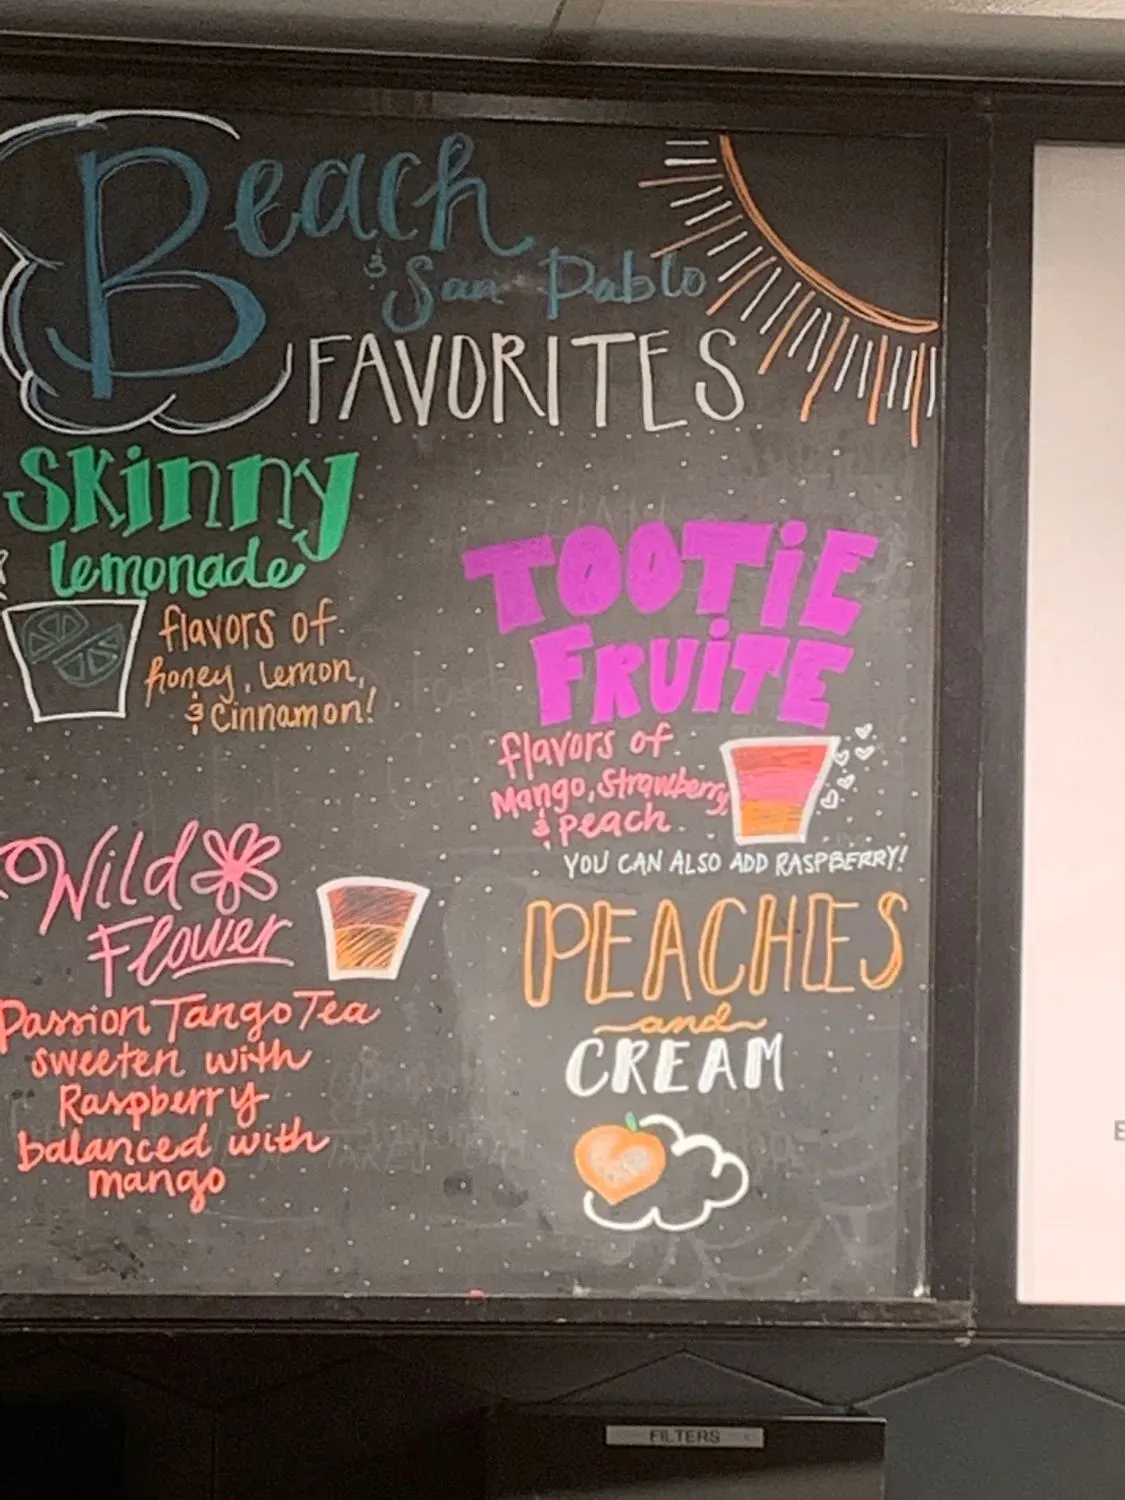 Beach
& San Pablo
FAVORITES
Skinny
lemonade
flavors of
honey, lemon,
& Cinnamon!
TOOTiE
FRUiTE
flavors of
Mango, Strawberry,
& Peach
YOU CAN ALSO ADD RASPBERRY!
Wild
Flower
Passion Tango Tea
sweeten with
Raspberry
balanced with
mango
PEACHES
and
CREAM
FILTERS